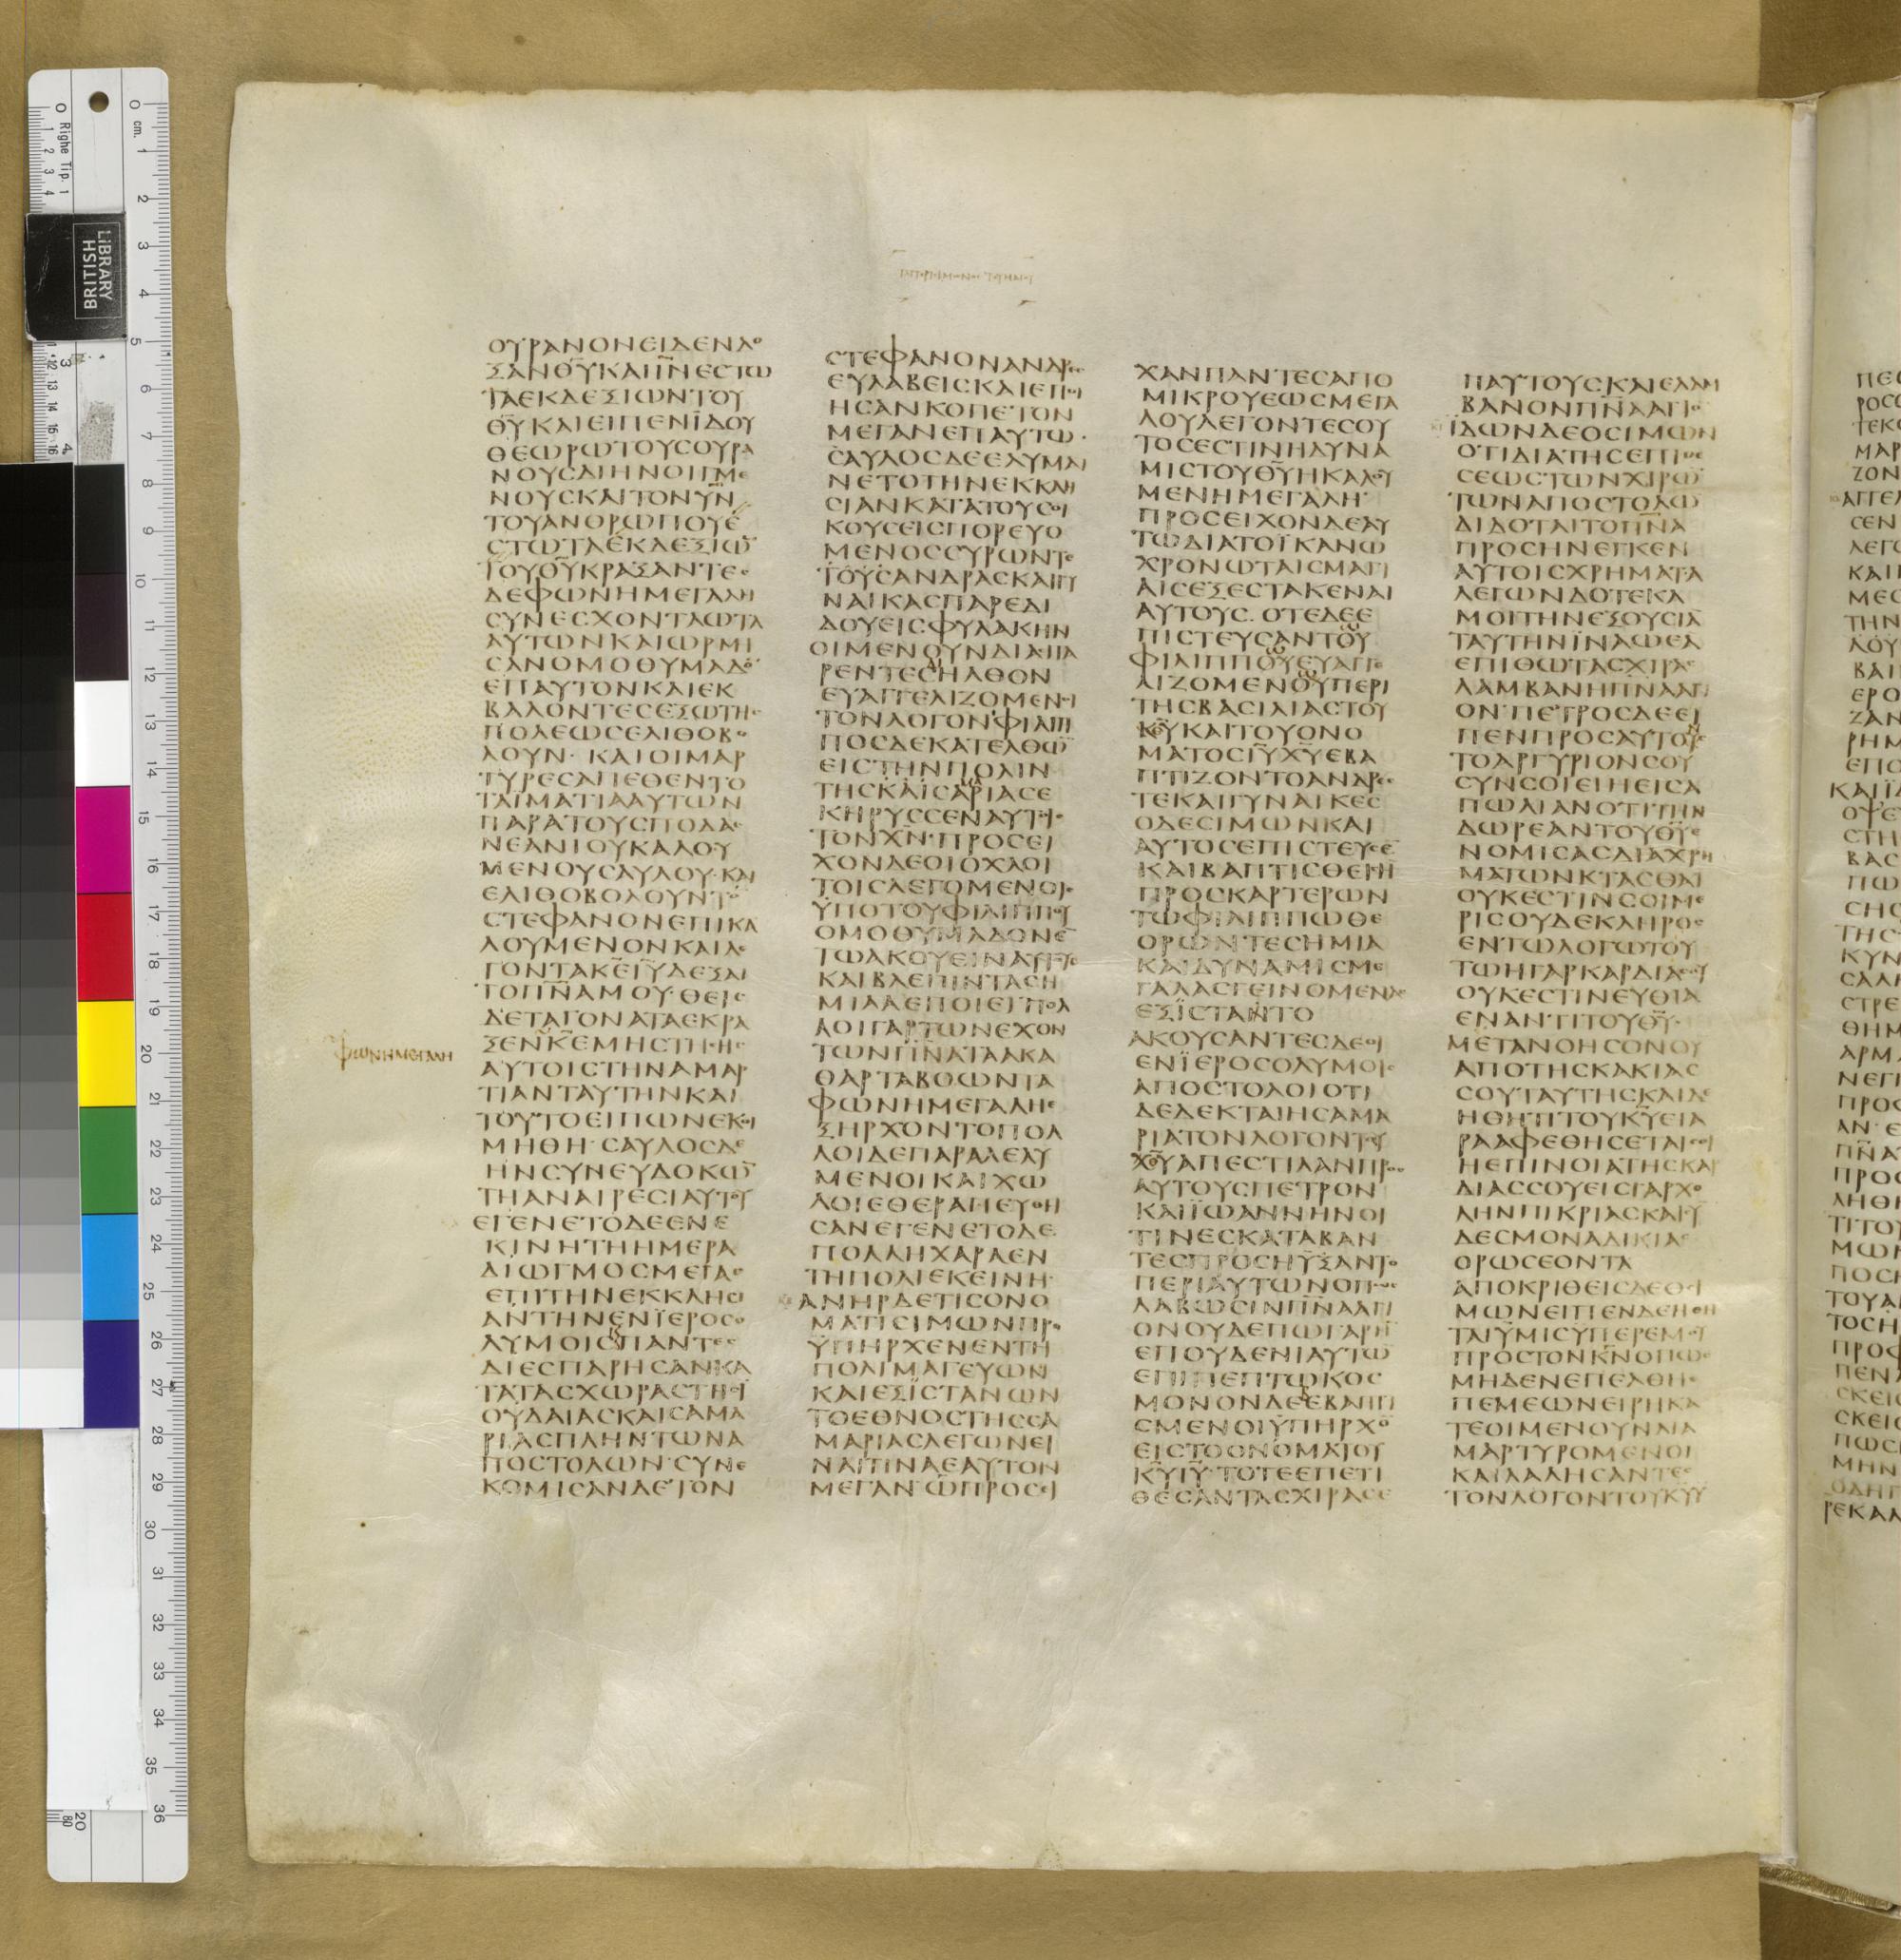 ΟΥΡΑΝΟΝΕΙΔΕΝΔΟ
ΞΑΝΘ̅Υ̅ΚΑΙΙ̅Ν̅ΕϹΤΩ
ΤΑΕΚΔΕΞΙΩΝΤΟΥ
Θ̅Υ̅ΚΑΙΕΙΠΕΝΪΔΟΥ
ΘΕΩΡΩΤΟΥϹΟΥΡΑ
ΝΟΥϹΔΙΗΝΟΙΓΜΕ
ΝΟΥϹΚΑΙΤΟΝΥ̅Ν̅
ΤΟΥΑΝΘΡΩΠΟΥΕ
ϹΤΩΤΑΕΚΔΕΞΙΩ̅
ΤΟΥΘ̅Υ̅ΚΡΑΞΑΝΤΕϹ
ΔΕΦΩΝΗΜΕΓΑΛΗ
ϹΥΝΕϹΧΟΝΤΑΩΤΑ
ΑΥΤΩΝΚΑΙΩΡΜΗ
ϹΑΝΟΜΟΘΥΜΑΔΟ̅
ΕΠΑΥΤΟΝΚΑΙΕΚ
ΒΑΛΟΝΤΕϹΕΞΩΤΗϹ
ΠΟΛΕΩϹΕΛΙΘΟΒΟ
ΛΟΥΝ·ΚΑΙΟΙΜΑΡ
ΤΥΡΕϹΑΠΕΘΕΝΤΟ
ΤΑΪΜΑΤΙΑΑΥΤΩΝ
ΠΑΡΑΤΟΥϹΠΟΔΑϹ
ΝΕΑΝΙΟΥΚΑΛΟΥ
ΜΕΝΟΥϹΑΥΛΟΥ·ΚΑΙ
ΕΛΙΘΟΒΟΛΟΥΝΤΟ̅
ϹΤΕΦΑΝΟΝΕΠΙΚΑ
ΛΟΥΜΕΝΟΝΚΑΙΛΕ
ΓΟΝΤΑΚ̅Ε̅Ι̅Υ̅ΔΕΞΑΙ
ΤΟΠ̅Ν̅Α̅ΜΟΥ·ΘΕΙϹ
ΔΕΤΑΓΟΝΑΤΑΕΚΡΑ
ΞΕΝΚ̅Ε̅ΜΗϹΤΗϹΗϹ
ΦΩΝΗΜΕΓΑΛΗ
ΑΥΤΟΙϹΤΗΝΑΜΑΡ
ΤΙΑΝΤΑΥΤΗΝΚΑΙ
ΤΟΥΤΟΕΙΠΩΝΕΚΟΙ
ΜΗΘΗ·ϹΑΥΛΟϹΔΕ
ΗΝϹΥΝΕΥΔΟΚΩ̅
ΤΗΑΝΑΙΡΕϹΙΑΥΤΟΥ
ΕΓΕΝΕΤΟΔΕΕΝΕ
ΚΙΝΗΤΗΗΜΕΡΑ
ΔΙΩΓΜΟϹΜΕΓΑϹ
ΕΠΙΤΗΝΕΚΚΛΗϹΙ
ΑΝΤΗΝΕΝΪΕΡΟϹΟ
ΛΥΜΟΙϹΠΑΝΤΕϹ
ΔΙΕϹΠΑΡΗϹΑΝΚΑ
ΤΑΤΑϹΧΩΡΑϹΤΗϹΪ
ΟΥΔΑΙΑϹΚΑΙϹΑΜΑ
ΡΙΑϹΠΛΗΝΤΩΝΑ
ΠΟϹΤΟΛΩΝ·ϹΥΝΕ
ΚΟΜΙϹΑΝΔΕΤΟΝ
ϹΤΕΦΑΝΟΝΑΝΔΡΕϹ
ΕΥΛΑΒΕΙϹΚΑΙΕΠΟΙ
ΗϹΑΝΚΟΠΕΤΟΝ
ΜΕΓΑΝΕΠΑΥΤΩ·
ϹΑΥΛΟϹΔΕΕΛΥΜΑΙ
ΝΕΤΟΤΗΝΕΚΚΛΗ
ϹΙΑΝΚΑΤΑΤΟΥϹΟΙ
ΚΟΥϹΕΙϹΠΟΡΕΥΟ
ΜΕΝΟϹϹΥΡΩΝΤΕ
ΤΟΥϹΑΝΔΡΑϹΚΑΙΓΥ
ΝΑΙΚΑϹΠΑΡΕΔΙ
ΔΟΥΕΙϹΦΥΛΑΚΗΝ
ΟΙΜΕΝΟΥΝΔΙΑϹΠΑ
ΡΕΝΤΕϹΗΛΘΟΝ
ΕΥΑΓΓΕΛΙΖΟΜΕΝΟΙ
ΤΟΝΛΟΓΟΝΦΙΛΙΠ
ΠΟϹΔΕΚΑΤΕΛΘΩ̅
ΕΙϹΤΗΝΠΟΛΙΝ
ΤΗϹΚΑΙϹΑΡΙΑϹΕ
ΚΗΡΥϹϹΕΝΑΥΤΟΙϹ
ΤΟΝΧ̅Ν̅·ΠΡΟϹΕΙ
ΧΟΝΔΕΟΙΟΧΛΟΙ
ΤΟΙϹΛΕΓΟΜΕΝΟΙϹ
ΫΠΟΤΟΥΦΙΛΙΠΠΟΥ
ΟΜΟΘΥΜΑΔΟΝΕ̅
ΤΩΑΚΟΥΕΙΝΑΥΤΟΥϹ
ΚΑΙΒΛΕΠΙΝΤΑϹΗ
ΜΙΑΑΕΠΟΙΕΙ·ΠΟΛ
ΛΟΙΓΑΡΤΩΝΕΧΟΝ
ΤΩΝΠ̅Ν̅Α̅ΤΑΑΚΑ
ΘΑΡΤΑΒΟΩΝΤΑ
ΦΩΝΗΜΕΓΑΛΗΕ
ΞΗΡΧΟΝΤΟΠΟΛ
ΛΟΙΔΕΠΑΡΑΛΕΛΥ
ΜΕΝΟΙΚΑΙΧΩ
ΛΟΙΕΘΕΡΑΠΕΥΘΗ
ϹΑΝΕΓΕΝΕΤΟΔΕ
ΠΟΛΛΗΧΑΡΑΕΝ
ΤΗΠΟΛΙΕΚΕΙΝΗ·
ΑΝΗΡΔΕΤΙϹΟΝΟ
ΜΑΤΙϹΙΜΩΝΠΡΟ
ΫΠΗΡΧΕΝΕΝΤΗ
ΠΟΛΙΜΑΓΕΥΩΝ
ΚΑΙΕΞΙϹΤΑΝΩΝ
ΤΟΕΘΝΟϹΤΗϹϹΑ
ΜΑΡΙΑϹΛΕΓΩΝΕΙ
ΝΑΙΤΙΝΑΕΑΥΤΟΝ
ΜΕΓΑΝ·ΩΠΡΟϹΕΙ
ΧΑΝΠΑΝΤΕϹΑΠΟ
ΜΙΚΡΟΥΕΩϹΜΕΓΑ
ΛΟΥΛΕΓΟΝΤΕϹΟΥ
ΤΟϹΕϹΤΙΝΗΔΥΝΑ
ΜΙϹΤΟΥΘ̅Υ̅ΗΚΑΛΟΥ
ΜΕΝΗΜΕΓΑΛΗ·
ΠΡΟϹΕΙΧΟΝΔΕΑΥ
ΤΩΔΙΑΤΟΪΚΑΝΩ
ΧΡΟΝΩΤΑΙϹΜΑΓΙ
ΑΙϹΕΞΕϹΤΑΚΕΝΑΙ
ΑΥΤΟΥϹ·ΟΤΕΔΕΕ
ΠΙϹΤΕΥϹΑΝΤΟΥ
ΦΙΛΙΠΠΟΥΕΥΑΓΓΕ
ΛΙΖΟΜΕΝΟΥΠΕΡΙ
ΤΗϹΒΑϹΙΛΙΑϹΤΟΥ
Κ̅Υ̅ΚΑΙΤΟΥΟΝΟ
ΜΑΤΟϹΙ̅Υ̅Χ̅Υ̅ΕΒΑ
ΠΤΙΖΟΝΤΟΑΝΔΡΕϹ
ΤΕΚΑΙΓΥΝΑΙΚΕϹ
ΟΔΕϹΙΜΩΝΚΑΙ
ΑΥΤΟϹΕΠΙϹΤΕΥϹΕ̅
ΚΑΙΒΑΠΤΙϹΘΕΙϹΗ̅
ΠΡΟϹΚΑΡΤΕΡΩΝ
ΤΩΦΙΛΙΠΠΩΘΕ
ΟΡΩΝΤΕϹΗΜΙΑ
ΚΑΙΔΥΝΑΜΙϹΜΕ
ΓΑΛΑϹΓΕΙΝΟΜΕΝΑϹ
ΕΞΙϹΤΑΝΤΟ
ΑΚΟΥϹΑΝΤΕϹΔΕΟΙ
ΕΝΪΕΡΟϹΟΛΥΜΟΙϹ
ΑΠΟϹΤΟΛΟΙΟΤΙ
ΔΕΔΕΚΤΑΙΗϹΑΜΑ
ΡΙΑΤΟΝΛΟΓΟΝΤΟΥ
Χ̅Υ̅ΑΠΕϹΤΙΛΑΝΠΡΟϹ
ΑΥΤΟΥϹΠΕΤΡΟΝ
ΚΑΙΪΩΑΝΝΗΝΟΙ
ΤΙΝΕϹΚΑΤΑΒΑΝ
ΤΕϹΠΡΟϹΗΥΞΑΝΤΟ
ΠΕΡΙΑΥΤΩΝΟΠΩϹ
ΛΑΒΩϹΙΝΠ̅Ν̅Α̅ΑΓΙ
ΟΝΟΥΔΕΠΩΓΑΡΗ̅
ΕΠΟΥΔΕΝΙΑΥΤΩ̅
ΕΠΙΠΕΠΤΩΚΟϹ
ΜΟΝΟΝΔΕΒΑΠΤΙ
ϹΜΕΝΟΙΫΠΗΡΧΟ̅
ΕΙϹΤΟΟΝΟΜΑΤΟΥ
Κ̅Υ̅Ι̅Υ̅·ΤΟΤΕΕΠΕΤΙ
ΘΕϹΑΝΤΑϹΧΙΡΑϹΕ
ΠΑΥΤΟΥϹΚΑΙΕΛΑΜ
ΒΑΝΟΝΠ̅Ν̅Α̅ΑΓΙΟ
ΪΔΩΝΔΕΟϹΙΜΩΝ
ΟΤΙΔΙΑΤΗϹΕΠΙΘΕ
ϹΕΩϹΤΩΝΧΙΡΩ̅
ΤΩΝΑΠΟϹΤΟΛΩ̅
ΔΙΔΟΤΑΙΤΟΠ̅Ν̅Α̅
ΠΡΟϹΗΝΕΓΚΕΝ
ΑΥΤΟΙϹΧΡΗΜΑΤΑ
ΛΕΓΩΝΔΟΤΕΚΑ
ΜΟΙΤΗΝΕΞΟΥϹΙΑ̅
ΤΑΥΤΗΝΪΝΑΩΕΑ
ΕΠΙΘΩΤΑϹΧΙΡΑϹ
ΛΑΜΒΑΝΗΠ̅Ν̅Α̅ΑΓΙ
ΟΝ·ΠΕΤΡΟϹΔΕΕΙ
ΠΕΝΠΡΟϹΑΥΤΟΥϹ
ΤΟΑΡΓΥΡΙΟΝϹΟΥ
ϹΥΝϹΟΙΕΙΗΕΙϹΑ
ΠΩΛΙΑΝΟΤΙΤΗΝ
ΔΩΡΕΑΝΤΟΥΘ̅Υ̅Ε
ΝΟΜΙϹΑϹΔΙΑΧΡΗ
ΜΑΤΩΝΚΤΑϹΘΑΙ
ΟΥΚΕϹΤΙΝϹΟΙΜΕ
ΡΙϹΟΥΔΕΚΛΗΡΟϹ
ΕΝΤΩΛΟΓΩΤΟΥ
ΤΩΗΓΑΡΚΑΡΔΙΑϹΟΥ
ΟΥΚΕϹΤΙΝΕΥΘΙΑ
ΕΝΑΝΤΙΤΟΥΘ̅Υ̅·
ΜΕΤΑΝΟΗϹΟΝΟΥ
ΑΠΟΤΗϹΚΑΚΙΑϹ
ϹΟΥΤΑΥΤΗϹΚΑΙΔΕ
ΗΘΗΤΙΤΟΥΚ̅Υ̅ΕΙΑ
ΡΑΑΦΕΘΗϹΕΤΑΙϹΟΙ
ΗΕΠΙΝΟΙΑΤΗϹΚΑΡ
ΔΙΑϹϹΟΥΕΙϹΓΑΡΧΟ
ΛΗΝΠΙΚΡΙΑϹΚΑΙϹΥ
ΔΕϹΜΟΝΑΔΙΚΙΑϹ
ΟΡΩϹΕΟΝΤΑ
ΑΠΟΚΡΙΘΕΙϹΔΕΟϹΙ
ΜΩΝΕΙΠΕΝΔΕΗΘΗ
ΤΑΙΫΜΙϹΫΠΕΡΕΜΟΥ
ΠΡΟϹΤΟΝΚ̅Ν̅ΟΠΩϹ
ΜΗΔΕΝΕΠΕΛΘΗΕ
ΠΕΜΕΩΝΕΙΡΗΚΑ
ΤΕΟΙΜΕΝΟΥΝΔΙΑ
ΜΑΡΤΥΡΟΜΕΝΟΙ
ΚΑΙΛΑΛΗϹΑΝΤΕϹ
ΤΟΝΛΟΓΟΝΤΟΥΚ̅Υ̅Ϋ